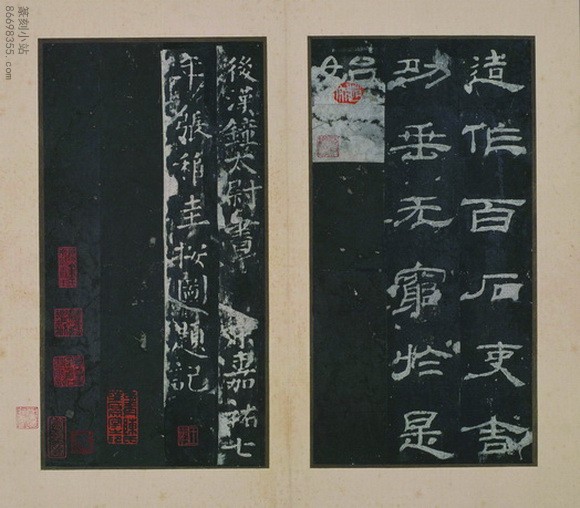 造作百石吏舍
功垂无窮於是
始
後漢鍾太尉書 宋嘉祐七
年張稚圭按圖題記
篆刻小站
86698355.com